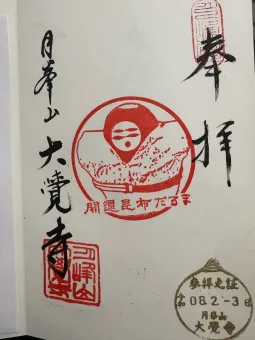 奉拝
開運昆布だるま
月峯山 大覺寺
参拝之証
08.2.-3
月峰山
大覺寺